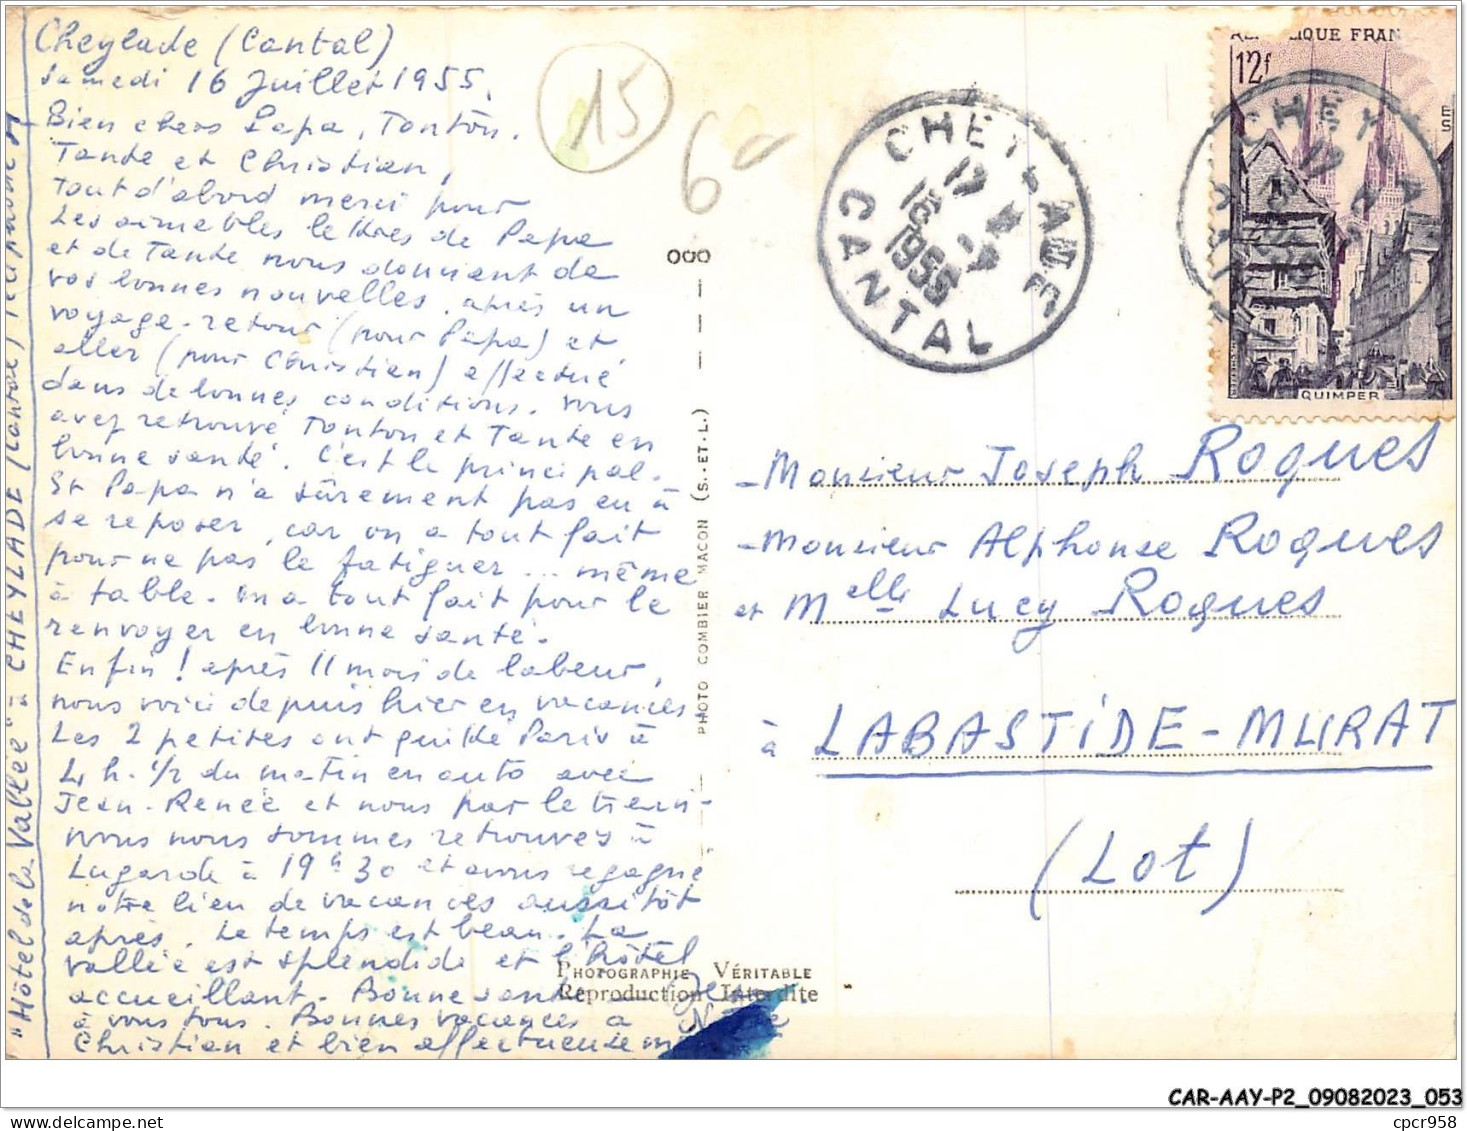 Cheylade (Cantal)
Samedi 16 Juillet 1955.
Bien chers Papa, Tonton,
Tante et Christian,
Tout d'abord merci pour
les aimables lettres de Papa
et de Tante nous donnant de
vos bonnes nouvelles, après un
voyage-retour (pour Papa) et
aller (pour Christian) effectué
dans de bonnes conditions. Vous
avez retrouvé Tonton et Tante en
bonne santé. C'est le principal.
Et Papa n'a sûrement pas eu à
se reposer, car on a tout fait
pour ne pas le fatiguer... même
à table. On a tout fait pour le
renvoyer en bonne santé.
Enfin ! après 11 mois de labeur,
nous voici depuis hier en vacances
Les 2 petites ont quitté Paris à
4 h. 1/2 du matin en auto avec
Jean-Renée et nous par le train-
nous nous sommes retrouvés à
Lugarde à 19h30 et avons regagné
notre lieu de vacances aussitôt
après. Le temps est beau. La
vallée est splendide et l'hôtel
accueillant. Bonne santé
à vous tous. Bonnes vacances à
Christian et bien affectueusement
"Hôtel de la Vallée" à CHEYLADE (Cantal)
15
6
000
PHOTO COMBIER MACON (S.-ET-L.)
PHOTOGRAPHIE VÉRITABLE
Reproduction Interdite
CHEYLADE
12
16 -7
1955
CANTAL
12f
QUIMPER
- Monsieur Joseph Roques
- Monsieur Alphonse Roques
et Melle Lucy Roques
à LABASTIDE-MURAT
(Lot)
CAR-AAY-P2_09082023_053
cpcr958